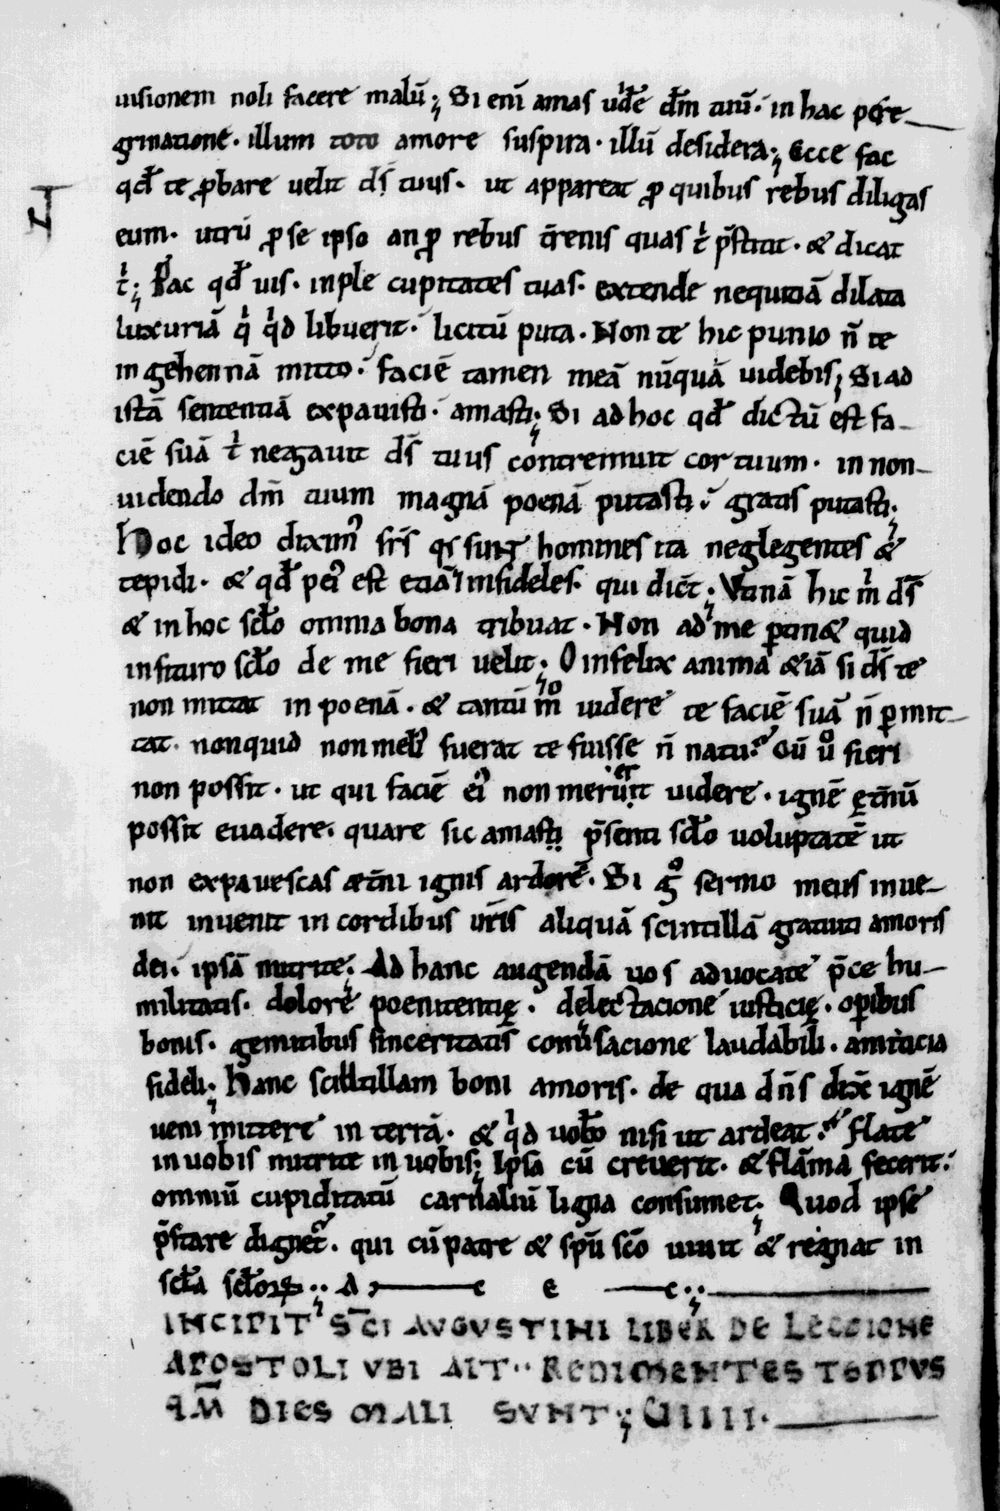 uisionem noli facere malū; Si enī amas uidē dm̄ tuū. in hac pere-
grinatione. illum toto amore suspira. illū desidera; Ecce fac
qđ te ꝓbare uelit ds̄ tuus. ut appareat ꝓ quibus rebus diligas
eum. utrū ꝓ se ipso an ꝓ rebus t̄renis quas tⁱ p̄stitit. & dicat
tⁱ; Fac qđ uis. inple cupitates tuas. extende nequitiā dilata
luxuriā qⁱ qⁱd libuerit. licitū puta. Non te hic punio n̄ te
in gehennā mitto. faciē tamen meā nūquā uidebis; Si ad
istā sententiā expauisti. amasti; Si ad hoc qđ dictū est fa-
ciē suā tⁱ negauit ds̄ tuus contremuit cor tuum. in non-
uidendo dm̄ tuum magnā poenā putasti. gratis putasti;
Hoc ideo diximꝰ frs̄ qs sunt homines ita neglegentes &
tepidi. & qđ peiꝰ est etiā infideles. qui dic̄t; Vtinā hic mⁱ ds̄
& in hoc scło omnia bona tribuat. Non ad me ꝑtin& quid
in futuro scło de me fieri uelit; O infelix anima &iā si ds̄ te
non mittat in poenā. & tantū mō uidere te faciē suā n̄ ꝑmit-
tat. nonquid non meliꝰ fuerat te fuisse n̄ natū? Cū uº fieri
non possit. ut qui faciē eiꝰ non meruerit uidere. ignē ęt̄nū
possit euadere. quare sic amasti p̄senti scło uoluptatē ut
non expauescas æt̄ni ignis ardorē. Si gº sermo meus inue-
nit inuenit in cordibus ur̄is aliquā scintillā gratuiti amoris
dei. ipsā nutrite; Ad hanc augendā uos aduocate p̄ce hu-
militatis. dolorē poenitentię. delectacione iusticię. oꝑibus
bonis. gemitibus sinceritatis conūsacione laudabili. amicicia
fideli; Hanc scintillam boni amoris. de qua dn̄s dix̄ ignē
ueni mittere in terrā. & qⁱd uolo nisi ut ardeat. Flate
in uobis nutrite in uobis; Ipsa cū creuerit. & flāma fecerit.
omniū cupiditatū carnaliū ligna consumet; Quod ipse
p̄stare dignet̄. qui cū patre & spū sc̄o uiuit & regnat in
scła scłoꝝ. A E
INCIPIT SC̄I AVGVSTINI LIBER DE LECCIONE
APOSTOLI VBI AIT. REDIMENTES TEMPVS
QM̄ DIES MALI SVNT; UIIII.